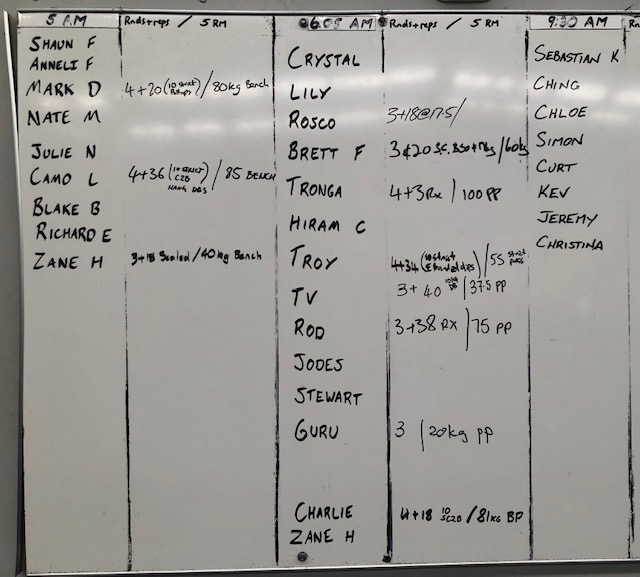 5 AM
Rnds+reps / 5 RM
SHAUN F
ANNELI F
MARK D 4+20 (10 strict Pullups) / 80kg Bench
NATE M
JULIE N
CAMO L 4+36 (10 STRICT C2B HANG DBS) / 85 BENCH
BLAKE B
RICHARD E
ZANE H 3+18 Scaled / 40kg Bench
6.05 AM
Rnds+reps / 5 RM
CRYSTAL
LILY
ROSCO 3+18@17.5/
BRETT F 3+20 / 60kg
TRONGA 4+3 Rx / 100 PP
HIRAM C
TROY 4+34 (10 strict banded dips) / 55 strict press
TV 3+40 10kg DB / 37.5 PP
ROD 3+38 RX / 75 PP
JODES
STEWART
GURU 3 / 20kg PP
CHARLIE 4+18 10 SC2B / 81KG BP
ZANE H
9:30 AM
Rn
SEBASTIAN K
CHING
CHLOE
SIMON
CURT
KEV
JEREMY
CHRISTINA